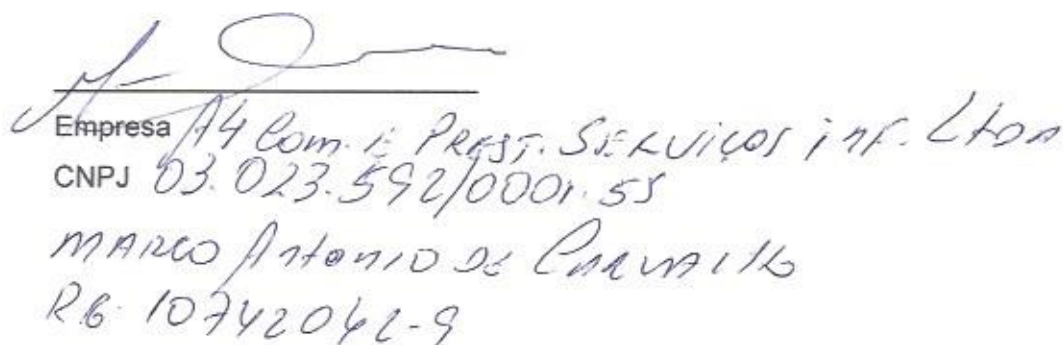 Empresa A4 Com. E PREST. SERVIÇOS inf. Ltda
CNPJ 03.023.592/0001.55
MARCO Antonio DE CARVALHO
RG. 10742042-9